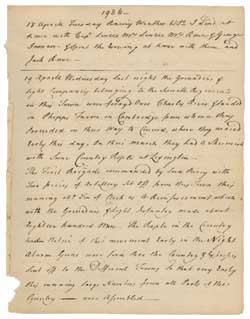 18 April Tuesday Rainy Weather I Dind at
home with Capt Linzee Mrs Linzee Mrs Rowe & George
Inman. I Spent the Evening at home with them and
Jack Rowe
19 April Wednesday Last night the Grenadiers &
Light Companys belonging to the Several Regiments
in this Town were ferryd Over Charles River & landed
on Phipps Farm in Cambridge from whence they
Proceeded on their Way to Concord, where they arrived
Early this day. On their march they had a Skirmish
with Some Country People at Lexington.
The First Brigade commanded by Lord Percy with
Two pieces of Artillery Set Off from this
morning Ten O Clock as A Reinforcement which
with the Grenadiers & Light Infantry made about
Eighteen hundred Men. The People in the Country
had Notice of this movement Early in the Night
Alarm Guns were fired thro the Country & Expresses
Sent off to the Different Towns so that very Early
this morning large Numbers from all Parts of the
Country — were Assembled —